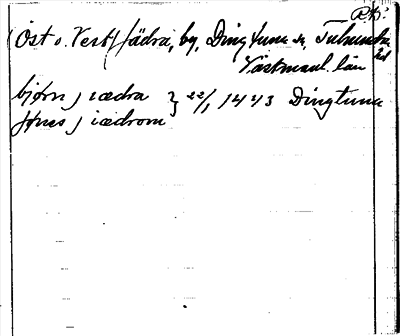 RK:
(Öst o. Vest) Jädra, by, Dingtuna sn, Tuhundra hd
Västmanl. län
bjørn j iædra } 22/1 1443 Dingtuna
jønis j iædrom